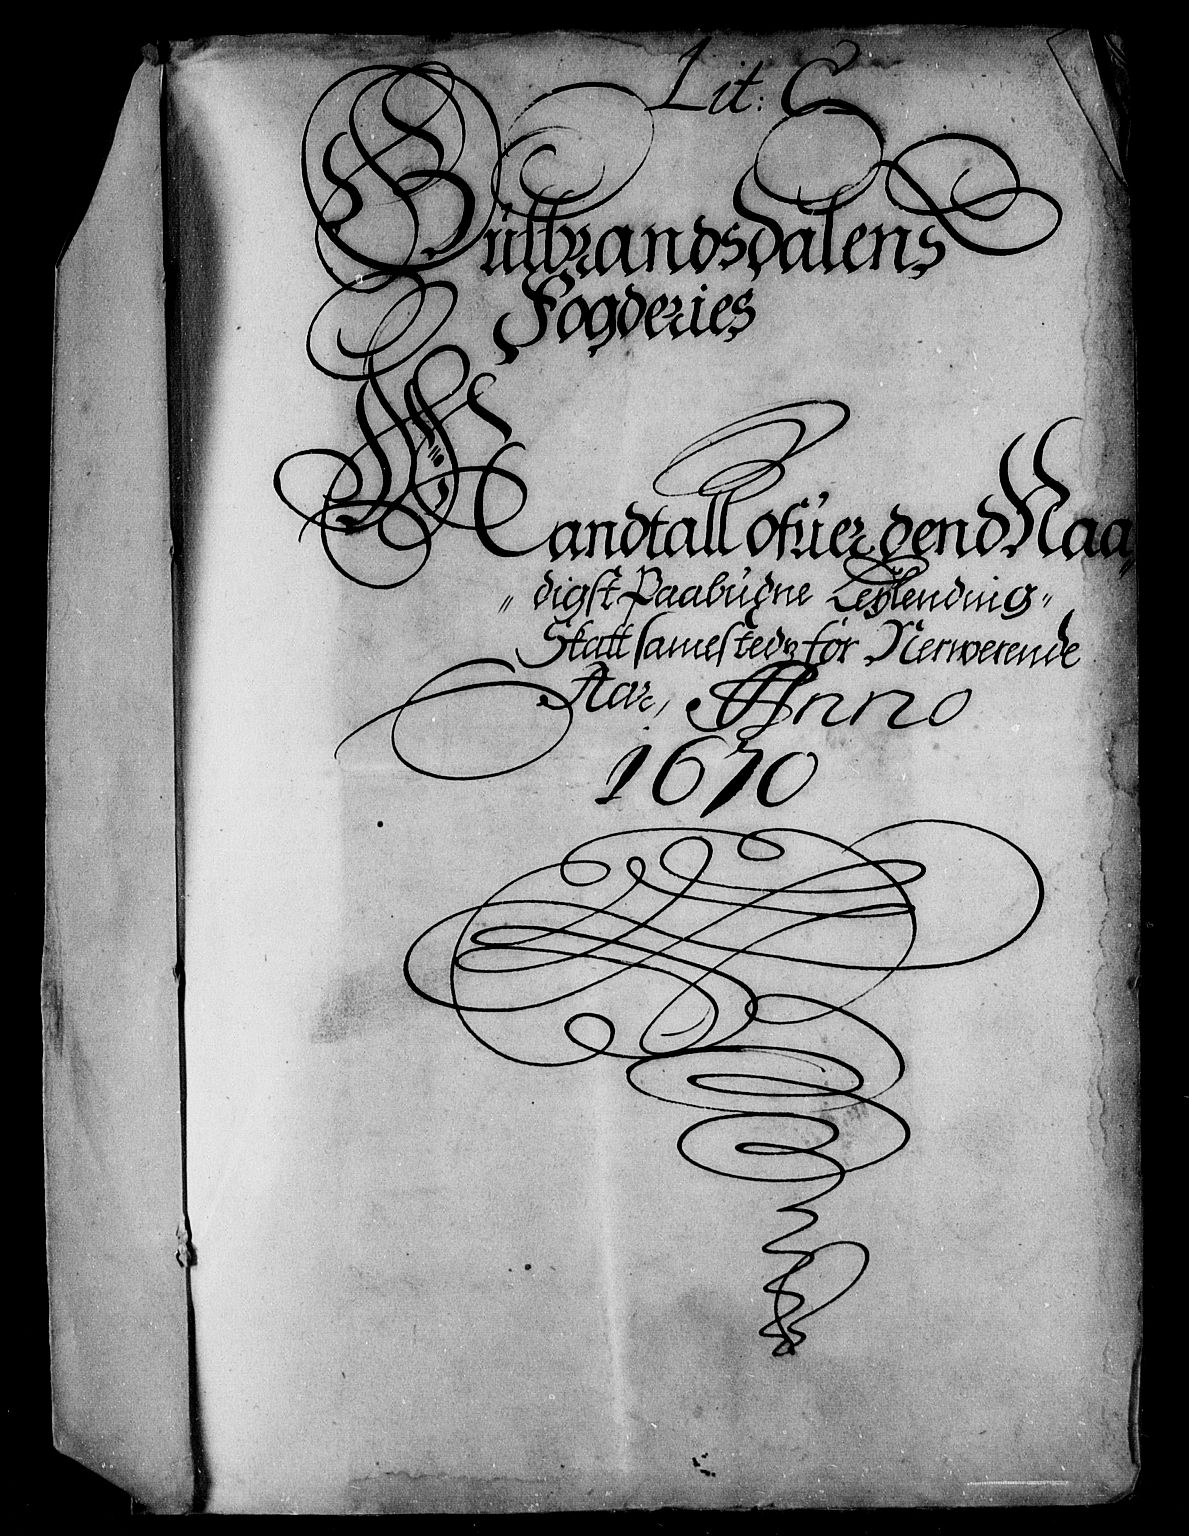 Lit: C
Gulbrandsdalens
Fogderies
Mandtall ofuer dend Naa„
„digst Paabudne Leylending„
Skatt samesteds for Nerwerende
Aar, Anno
1670